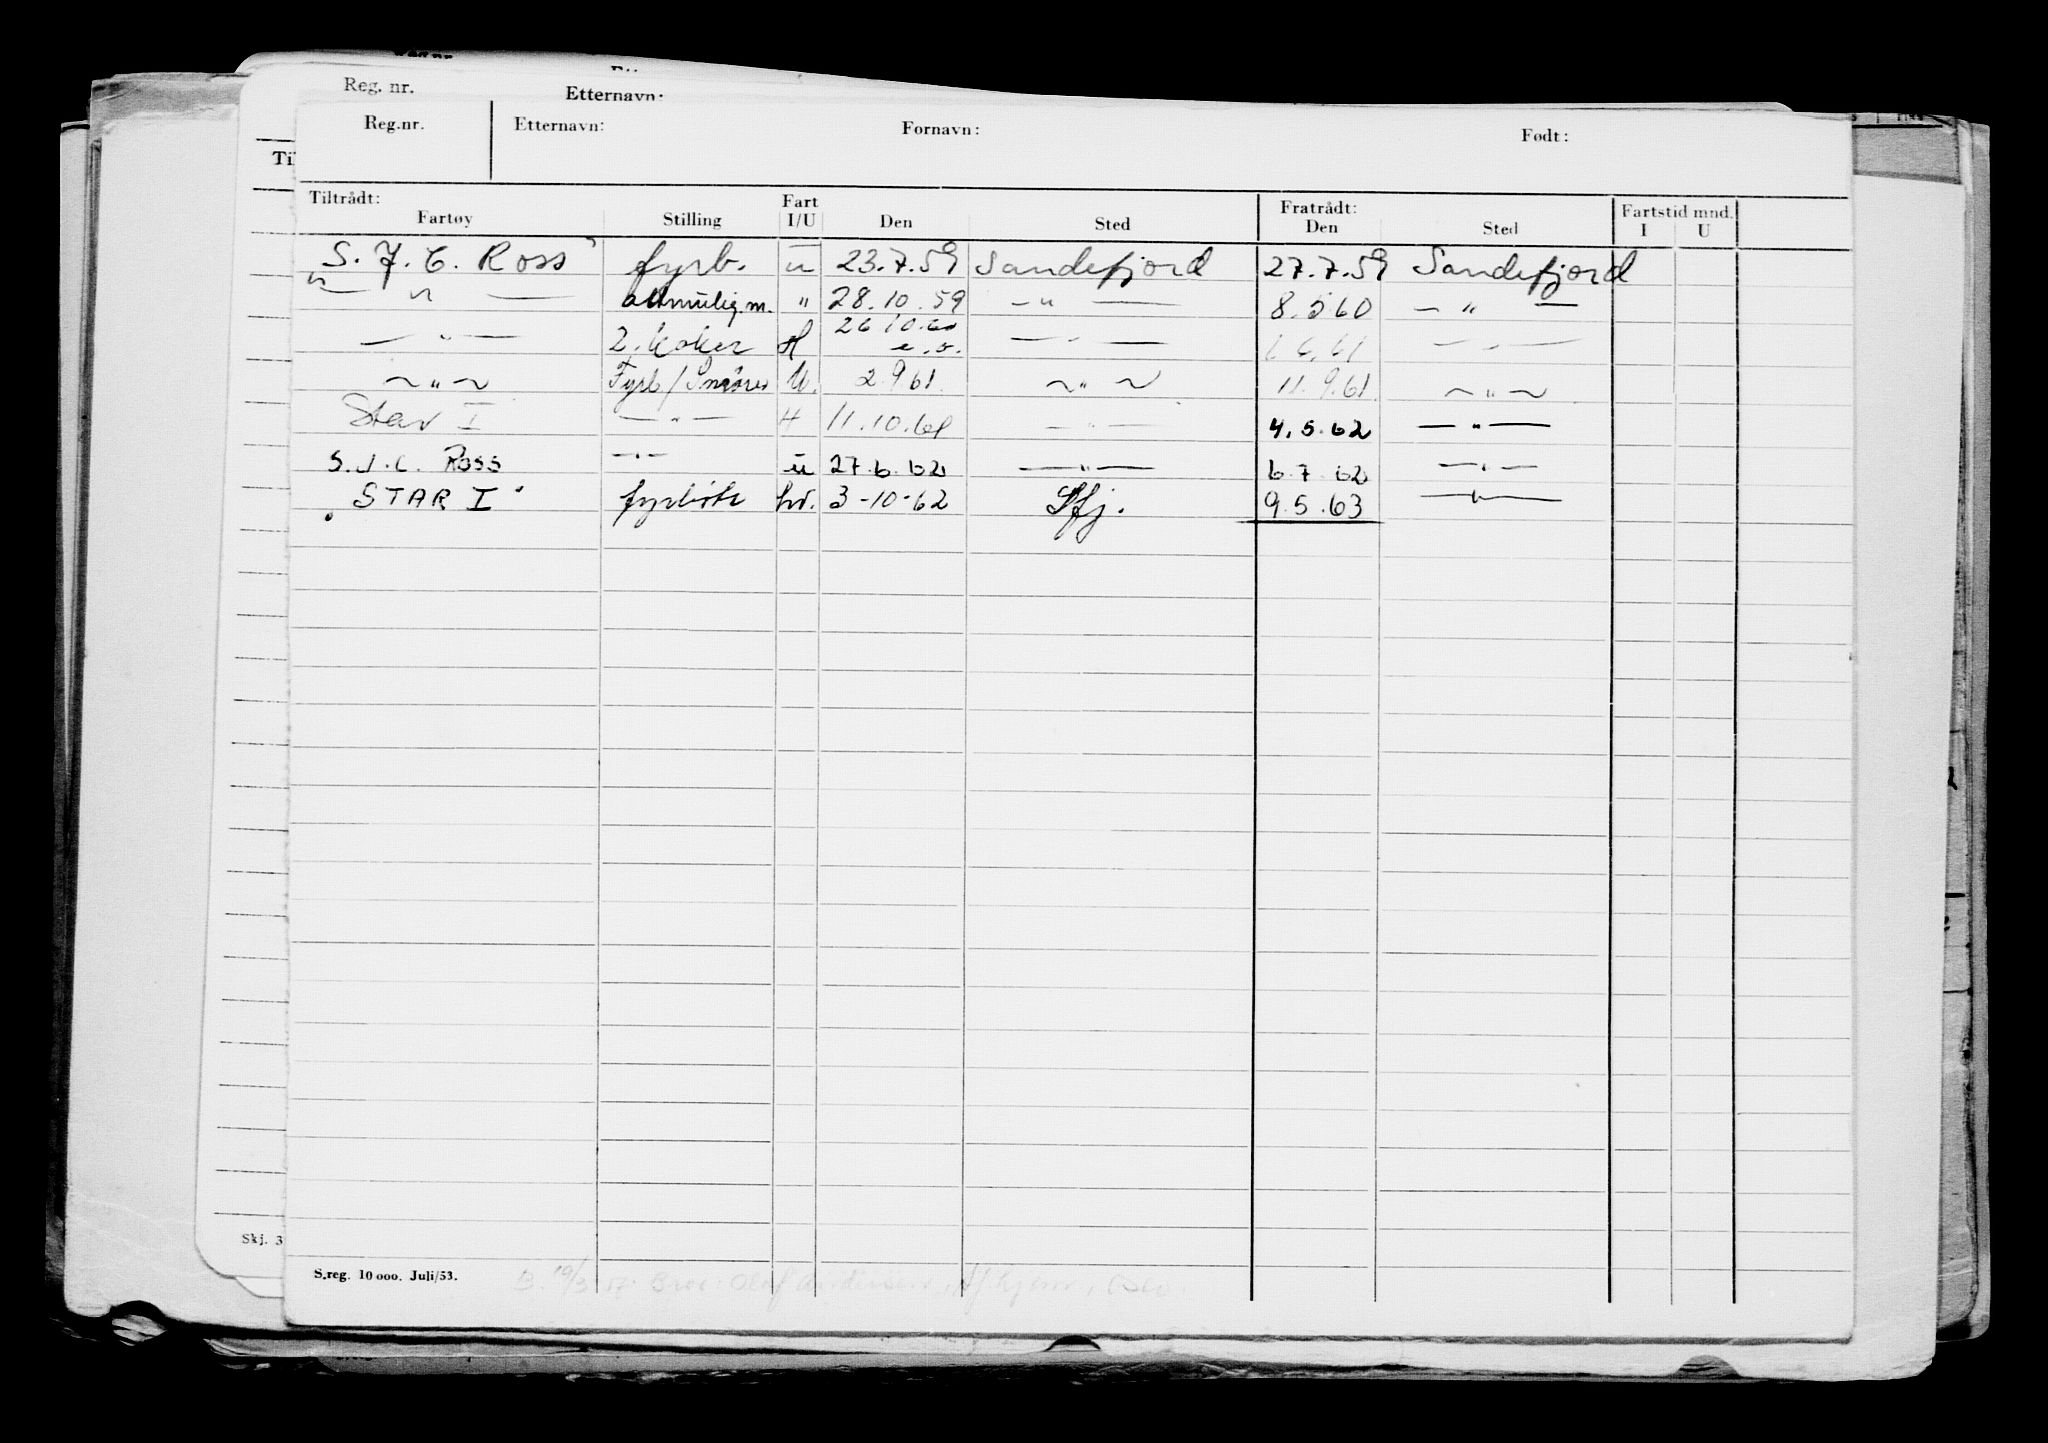 Reg. nr. Etternavn:
Reg.nr. Etternavn: Fornavn: Født:
Tiltrådt: Fartøy Stilling Fart I/U Den Sted Fratrådt: Den Sted Fartstid mnd. I U
"S. J. C. Ross" fyrb. u 23.7.59 Sandefjord 27.7.59 Sandefjord
— " — altmulig.m. " 28.10.59 — " — 8.5 60 — " —
— " — 2. koker H 26 10.60 — " — — " —
~ " ~ Fyrb/Smører U. 2.9 61. ~ " ~ 11.9.61. ~ " ~
Star I — " — H 11.10.61 — " — 4.5.62 — " —
S.J.C. Ross — " — u 27.6.62 — " — 6.7.62 — " —
"STAR I" fyrbøter hv. 3-10-62 Sfj. 9.5.63 — " —
Skj. 3
S.reg. 10 000. Juli/53.
B. 19/3-57. Bror: Olof Andersen, Oslo.